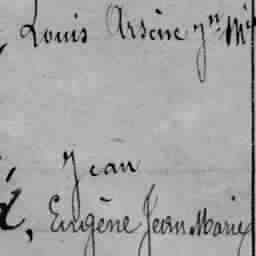 Louis Arsène
Jean
Eugène Jean Marie